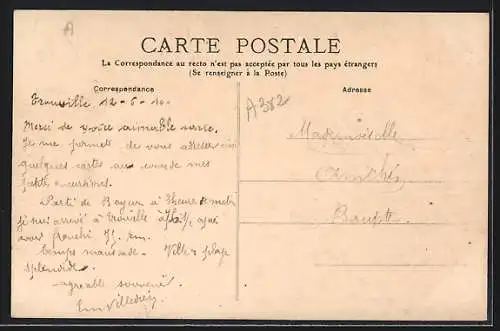 A
CARTE POSTALE
La Correspondance au recto n'est pas acceptée par tous les pays étrangers
(Se renseigner à la Poste)
Correspondance
Adresse
Trouville 12-6-10
A382
Merci de votre aimable carte.
Je me permets de vous adresser
quelques cartes au cours de mes
petites excursions.
Parti de Bayeux à
je suis arrivé à Trouville à après
avoir franchi 75 km.
temps maussade. Ville & plage
splendides.
agréable souvenir
Mademoiselle